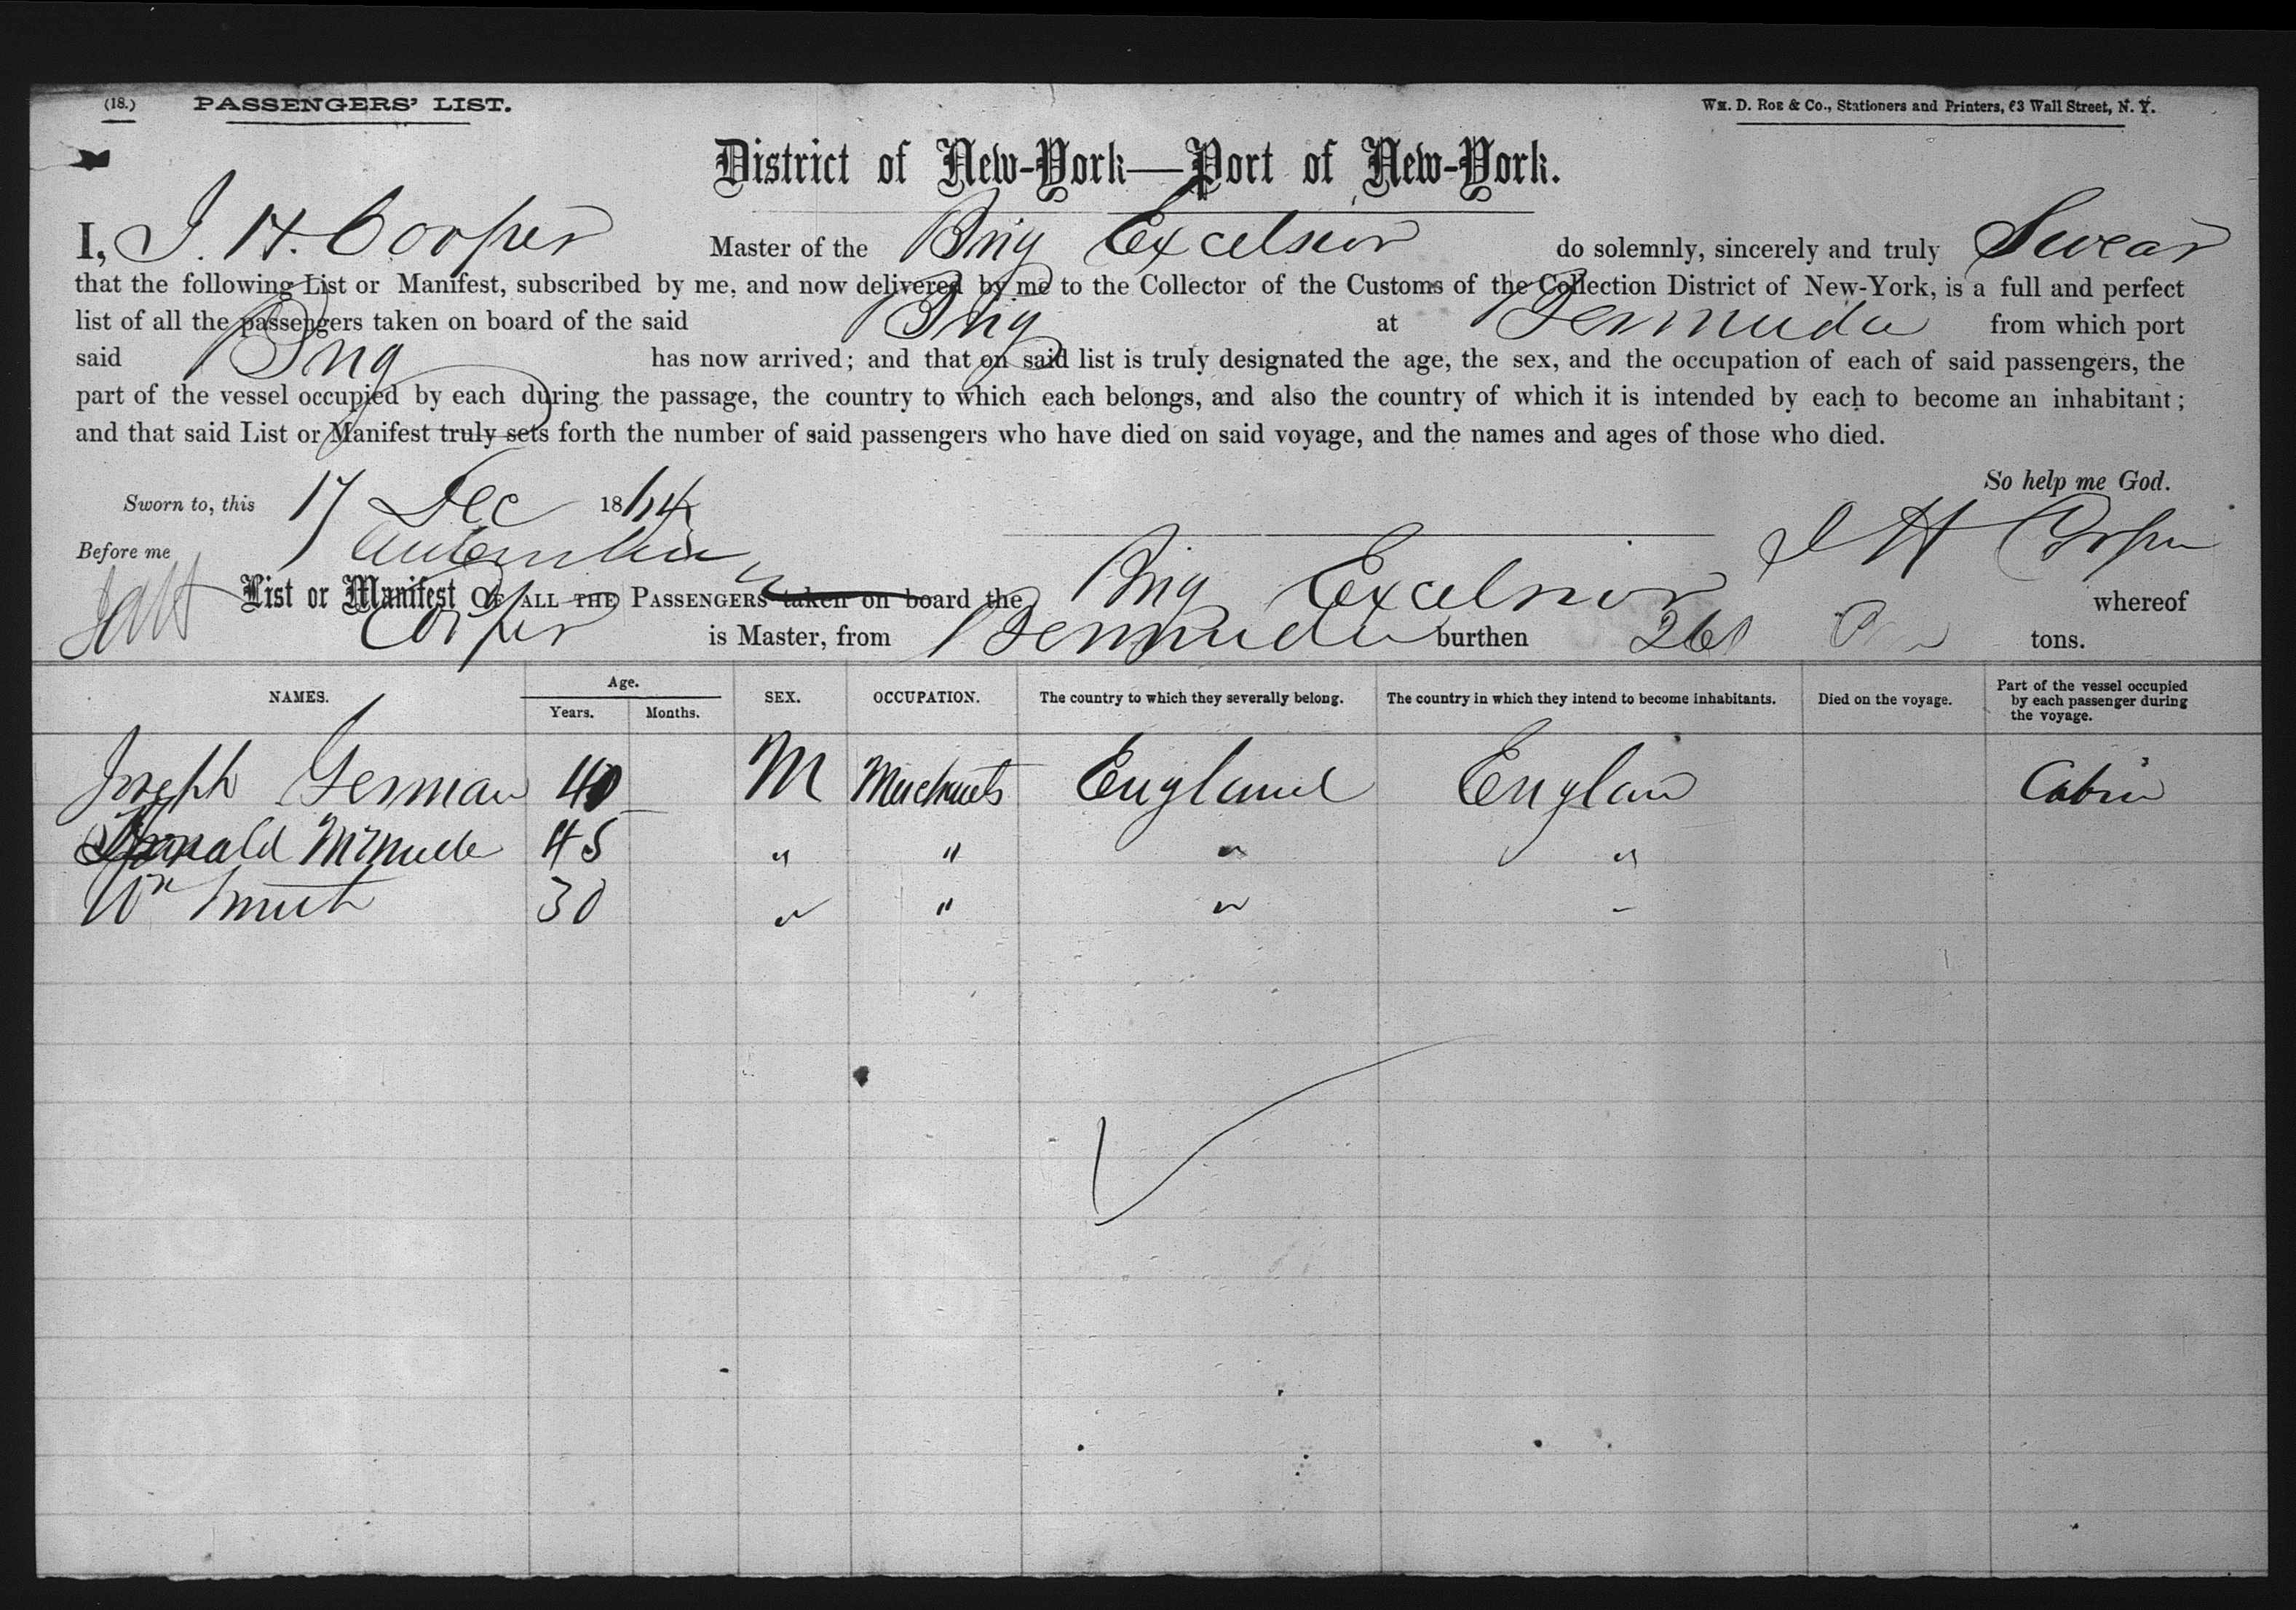 (18.) PASSENGERS' LIST. Wm. D. Roe & Co., Stationers and Printers, 63 Wall Street, N. Y.
District of New-York—Port of New-York.
I, J. H. Cooper Master of the Brig Excelsior do solemnly, sincerely and truly Swear
that the following List or Manifest, subscribed by me, and now delivered by me to the Collector of the Customs of the Collection District of New-York, is a full and perfect
list of all the passengers taken on board of the said Brig at Bermuda from which port
said Brig has now arrived; and that on said list is truly designated the age, the sex, and the occupation of each of said passengers, the
part of the vessel occupied by each during the passage, the country to which each belongs, and also the country of which it is intended by each to become an inhabitant;
and that said List or Manifest truly sets forth the number of said passengers who have died on said voyage, and the names and ages of those who died.
So help me God.
Sworn to, this 17 Dec 1864
J H Cooper
Before me
List or Manifest OF ALL THE PASSENGERS taken on board the Brig Excelsior whereof
Cooper is Master, from Bermuda burthen tons.
NAMES. Age. Years. Months. SEX. OCCUPATION. The country to which they severally belong. The country in which they intend to become inhabitants. Died on the voyage. Part of the vessel occupied by each passenger during the voyage.
Joseph 40 M Merchants England Englan Cabin
45 " " " "
Wm Smith 30 " " " "